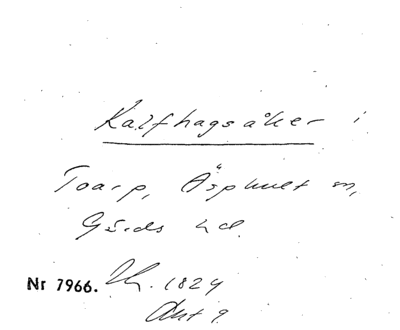 Kalfhagsåker i
Toarp, Äsphult sn,
Gärds hd.
Nr 7966. 1824
Akt 9